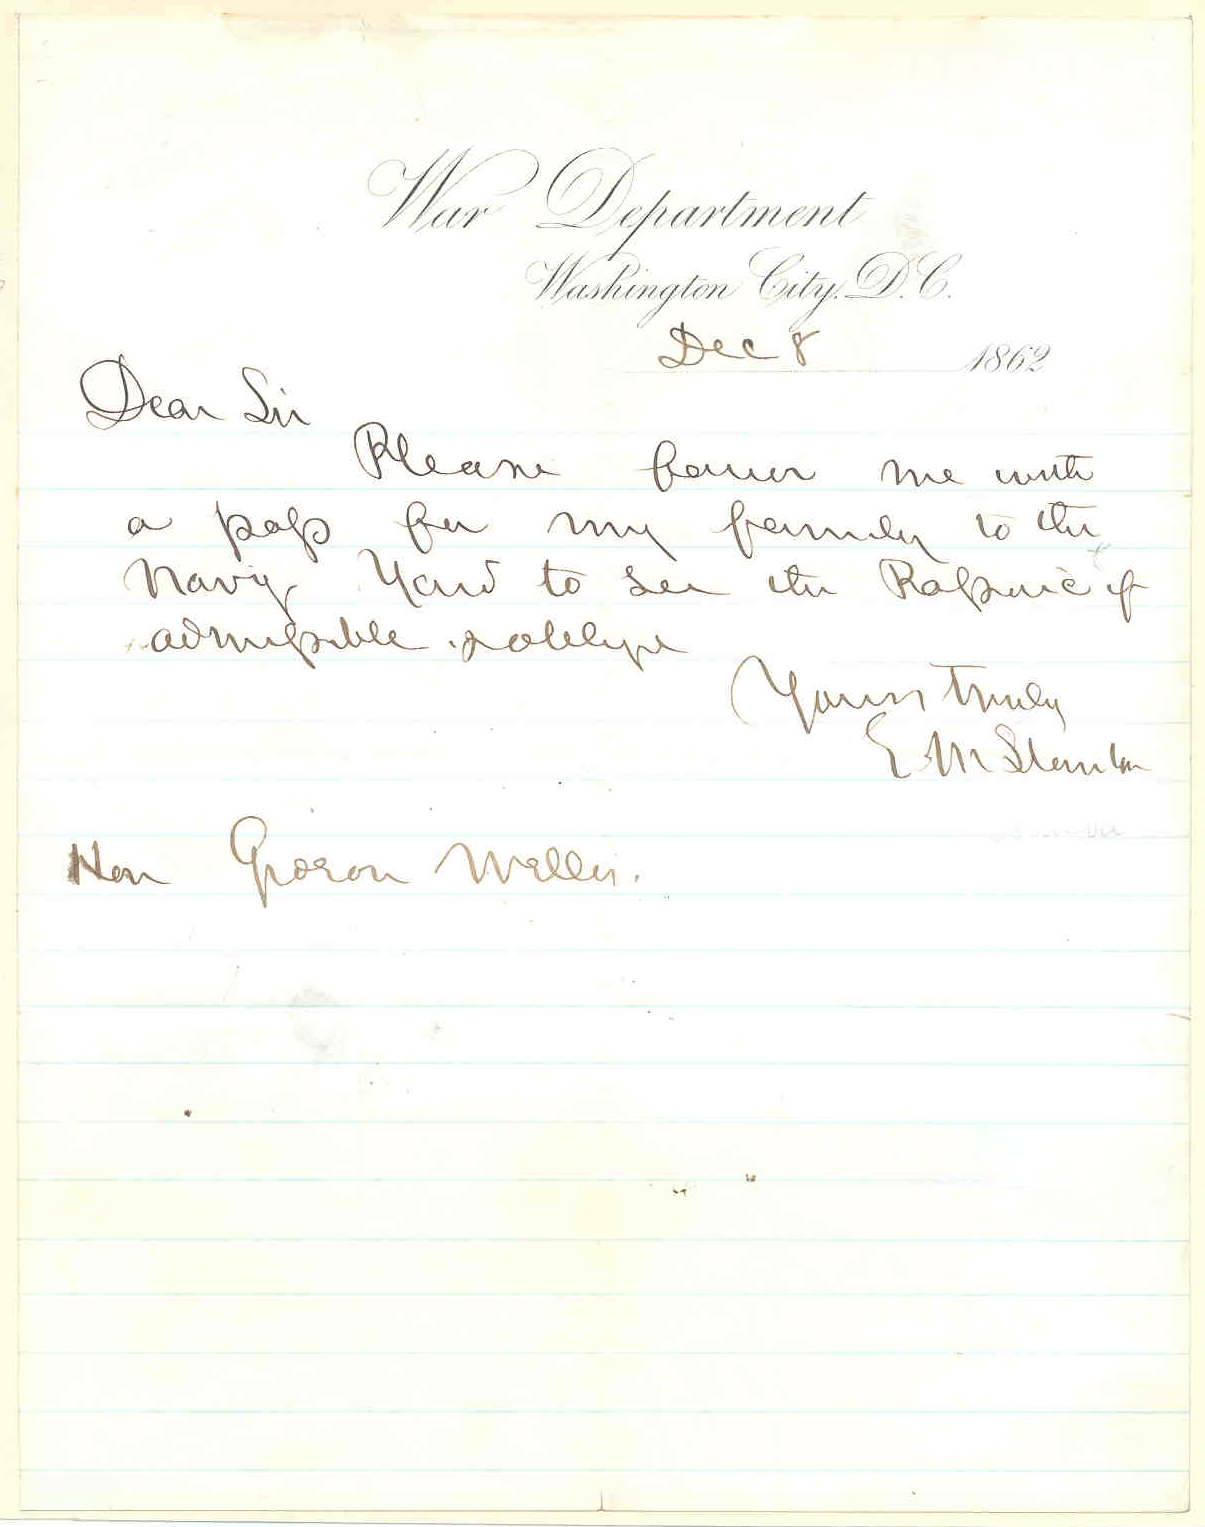 War Department
Washington City, D.C.
Dec 8 1862
Dear Sir
Please favor me with
a pass for my family to the
Navy Yard to see the Passaic if
admissible
Yours truly
E M Stanton
Hon Gideon Welles.